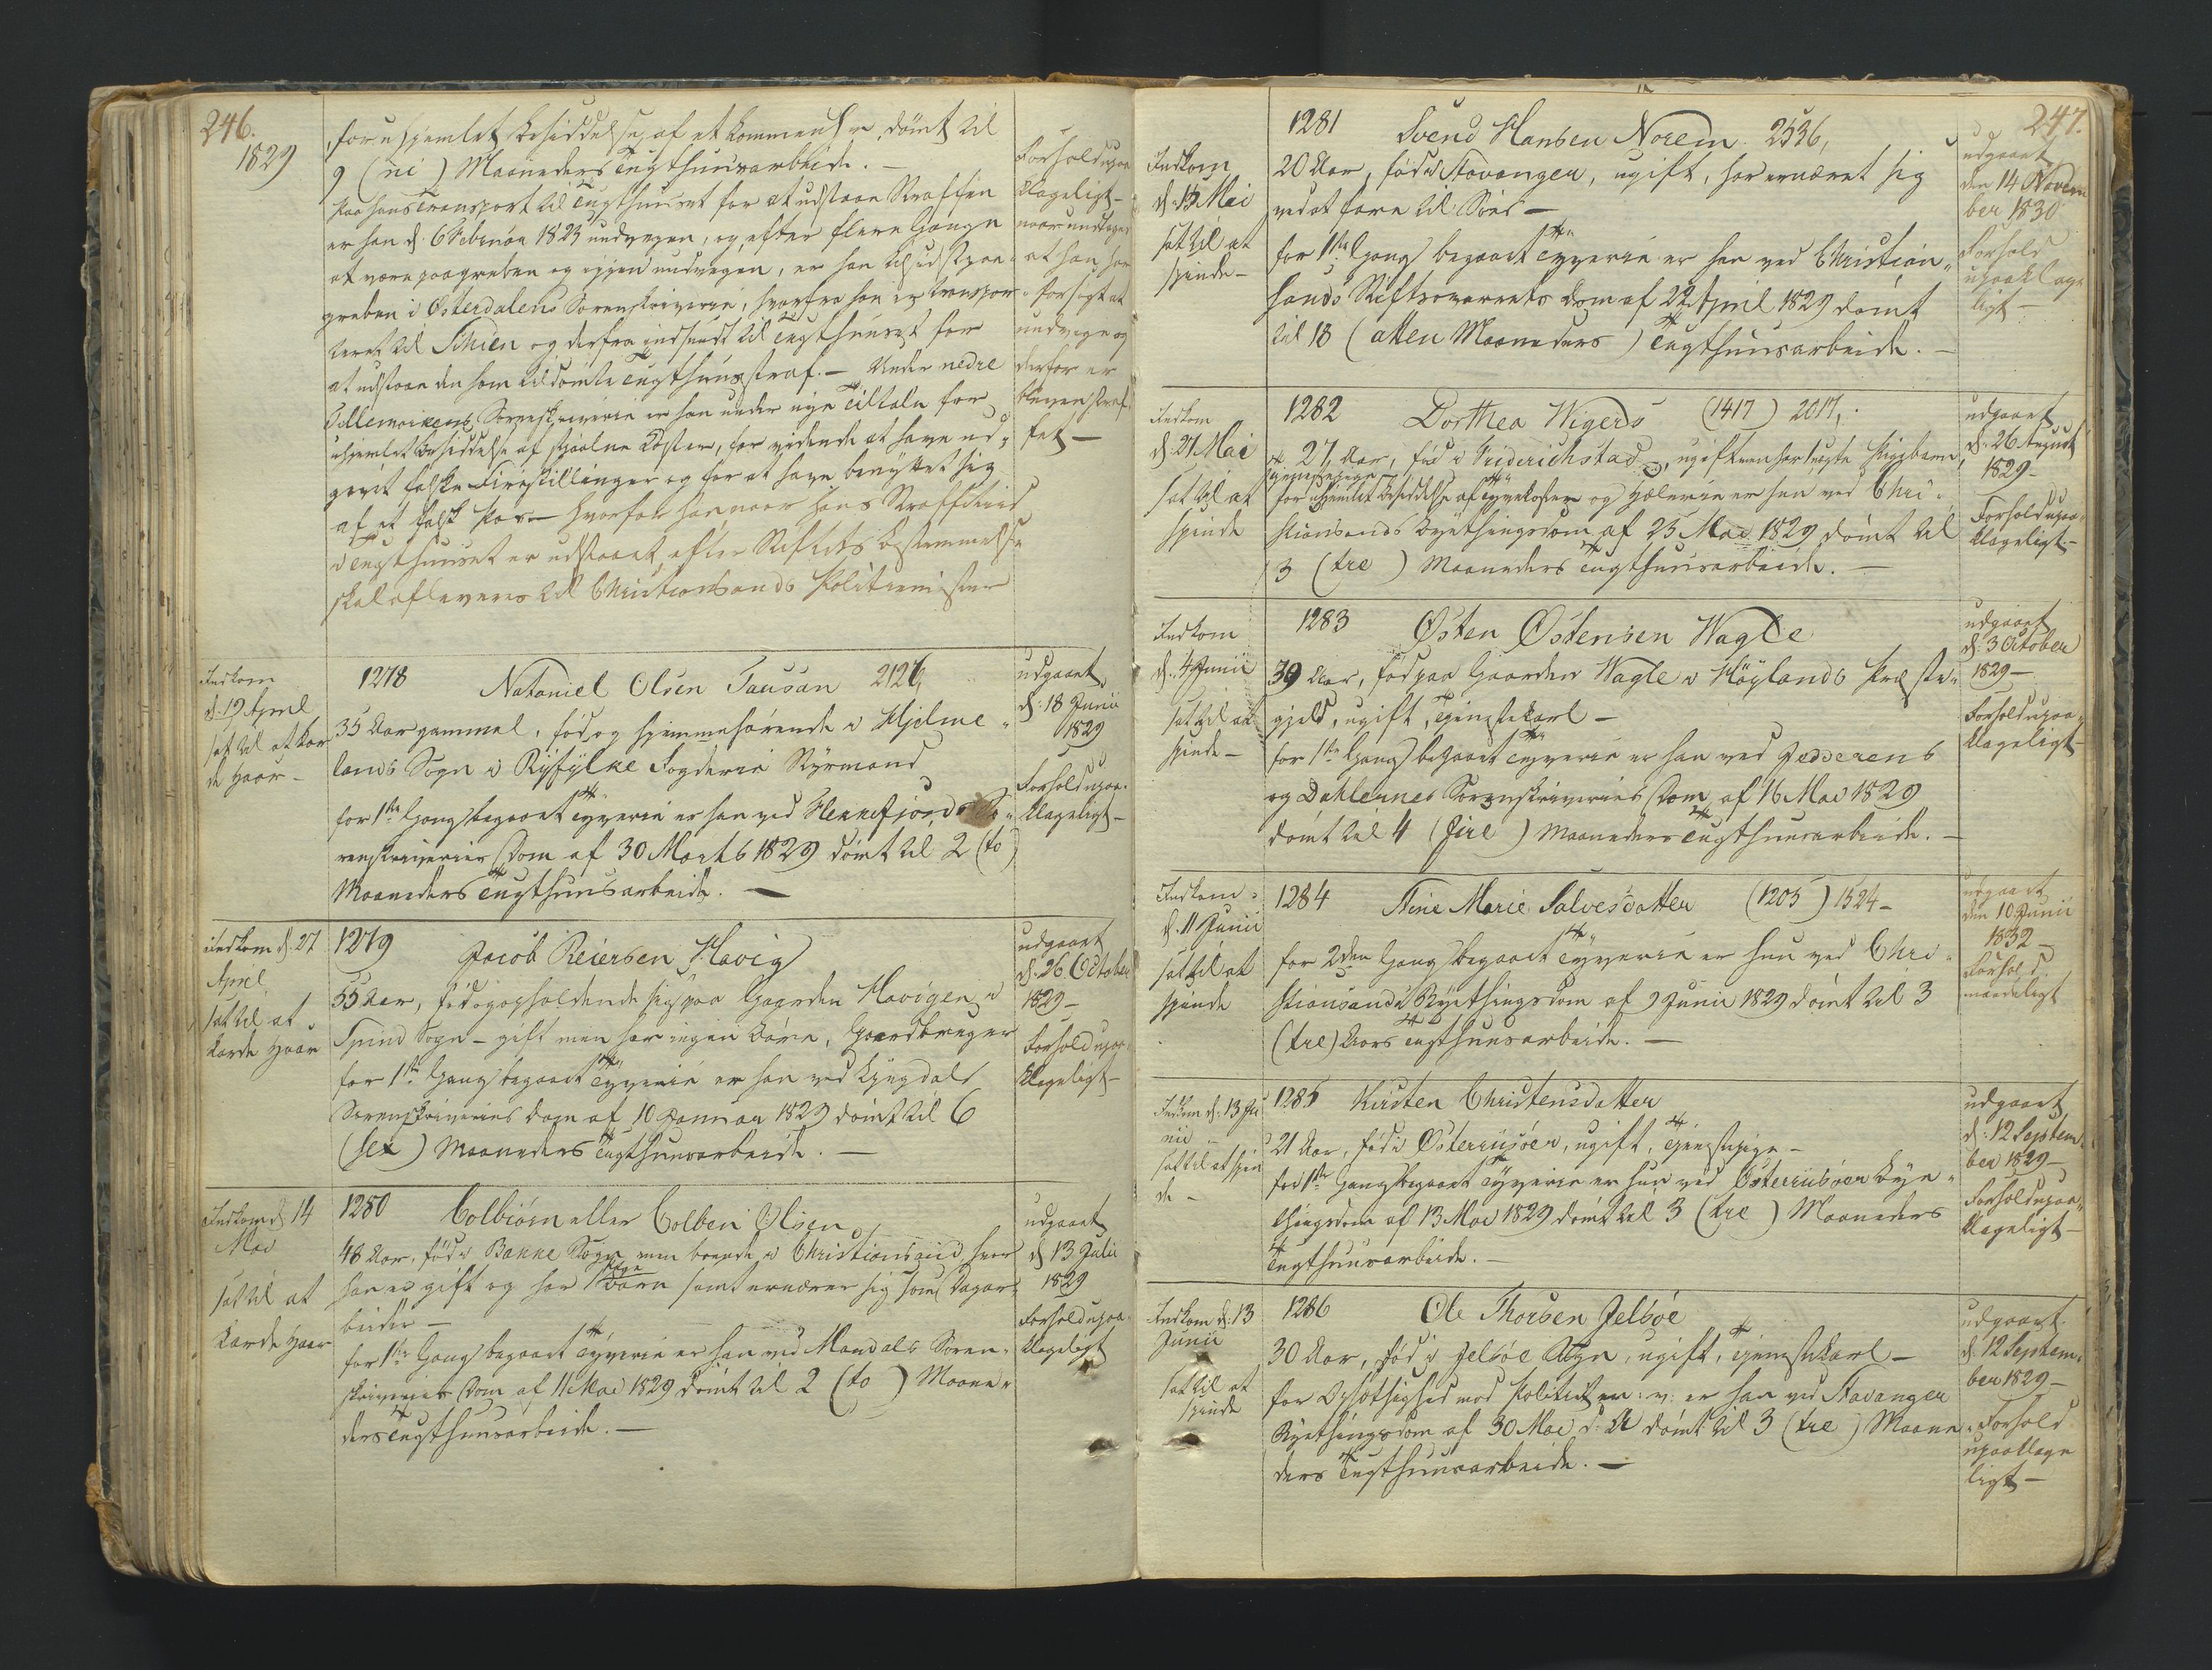 246.
1829
for uhjemlet Besiddelse af et Kommenhvr, dömt til
9 (ni) Maaneders Tugthuusarbeide. —
Paa hans Transport til Tugthuuset for at udstaae Straffen
er han d: 6 Februar 1823 undvegen, og efter flere Gange
at være paagreben og igjen undvegen, er han tilsidst paa-
greben i Østerdalens Sorenskriverie, hvorfra han er transpor
teret til Schien og derfra indsendt til Tugthuuset for
at udstaae den ham tildömte Tugthuusstraf. — Under nedre
Tellemarkens Sorenskriverie er han under nye Tiltale for
uhjemlet Besiddelse af stjaalne Koster, for vidende at have ud-
givet falske Fireskillinger og for at have benyttet sig
af et falsk Pas — hvorfor han naar hans Straffetiid
i Tugthuuset er udstaaet, efter Stiftets Bestemmelse
skal afleveres til Christiansands Politiemester
Forhold upaa
klageligt —
naar undtages
at han har
forsögt at
undvige og
derfor er
bleven straf
fet —
Indkom
d: 19 April
sat til at kar
de Haar —
1278 Nataniel Olsen Tausan 2126,
35 Aar gammel, föd og hjemmehörende i Hjelme-
lands Sogn i Ryfylke Fogderie Styrmand
for 1ste Gang begaaet Tyverie er han ved Flekkefjords So-
renskriveries Dom af 30 Marts 1829 dömt til 2 (to)
Maaneders Tugthuusarbeide. —
udgaaet
d: 18 Junii
1829
Forhold upaa-
klageligt —
Indkom d: 27
April
sat til at
karde Haar
1279 Jacob Reiersen Havig
55 Aar, föd og opholdende sig paa Gaarden Havigen i
Spind Sogn — gift men har ingen Börn, Gaardbruger
for 1ste Gang begaaet Tyverie er han ved Lyngdals
Sorenskriveries Dom af 10 Januar 1829 dömt til 6
(sex) Maaneders Tugthuusarbeide. —
udgaaet
d: 26 October
1829 —
Forhold upaa-
klageligt —
Indkom d: 14
Mai
sat til at
karde Haar
1280 Colbiörn eller Colben Olsen
48 Aar, föd i Bakke Sogn men boende i Christiansand, hvor
han er gift og har Börn samt ernærer sig som Dagar-
beider —
for 1ste Gang begaaet Tyverie er han ved Mandals Soren-
skriveries Dom af 11 Mai 1829 dömt til 2 (to) Maane-
ders Tugthuusarbeide. —
udgaaet
d: 13 Julii
1829
Forhold upaa-
klageligt
247.
Indkom
d: 15 Mai
sat til at
spinde —
1281 Svend Hansen Norem 2536,
20 Aar, föd i Stavanger, ugift, har ernæret sig
ved at fare til Söes —
for 1ste Gang begaaet Tyverie er han ved Christian-
sands Stiftsoverrets Dom af 22 April 1829 dömt
til 18 (atten Maaneders) Tugthuusarbeide. —
udgaaet
den 14 Novem
ber 1830
Forhold
upaaklage
ligt —
Indkom
d: 27 Mai
sat til at
spinde
1282 Dorthea Wigers (1417) 2017,
27 Aar, föd i Friderichstad, ugift men har uægte Pigebarn,
for uhjemlet Besiddelse af Tyvekoster og Hælerie er hun ved Chri-
stiansands Byethingsdom af 25 Mai 1829 dömt til
3 (tre) Maaneders Tugthuusarbeide. —
udgaaet
d: 26 August
1829 —
Forhold upaa-
klageligt —
Indkom
d: 4 Junii
sat til at
spinde —
1283 Østen Østensen Wagle
39 Aar, föd paa Gaarden Wagle i Höylands Præste-
gjeld, ugift, Tjenestekarl —
for 1ste Gang begaaet Tyverie er han ved Jedderens
og Dahlernes Sorenskriveries Dom af 16 Mai 1829
dömt til 4 (fire) Maaneders Tugthuusarbeide. —
udgaaet
d: 3 October
1829 —
Forhold upaa-
klageligt —
Indkom
d: 11 Junii
sat til at
spinde
1284 Stine Marie Salvesdatter (1205) 1524 —
for 2den Gang begaaet Tyverie er hun ved Chri-
stiansands Byethingsdom af 9 Junii 1829 dömt til 3
(tre) Aars Tugthuusarbeide. —
udgaaet
den 10 Junii
1832 —
Forhold
maadeligt
Indkom d: 13 Ju
nii
sat til at spin
de —
1285 Kirsten Christensdatter
21 Aar, föd i Østerriisöer, ugift, Tjenestepige —
for 1ste Gang begaaet Tyverie er hun ved Österriisöer Bye-
thingsdom af 13 Mai 1829 dömt til 3 (tre) Maaneders
Tugthuusarbeide. —
udgaaet
d: 12 Septem
ber 1829 —
Forhold upaa-
klageligt —
Indkom d: 13
Junii
sat til at
spinde
1286 Ole Thorsen Jelsöe
30 Aar, föd i Jelsöe Sogn, ugift, Tjenestekarl —
for Opsætsighed mod Politiet m: v: er han ved Stavanger
Byethingsdom af 30 Mai d: A dömt til 3 (tre) Maane-
ders Tugthuusarbeide. —
udgaaet
d: 12 Septem-
ber 1829 —
Forhold
upaaklage
ligt —